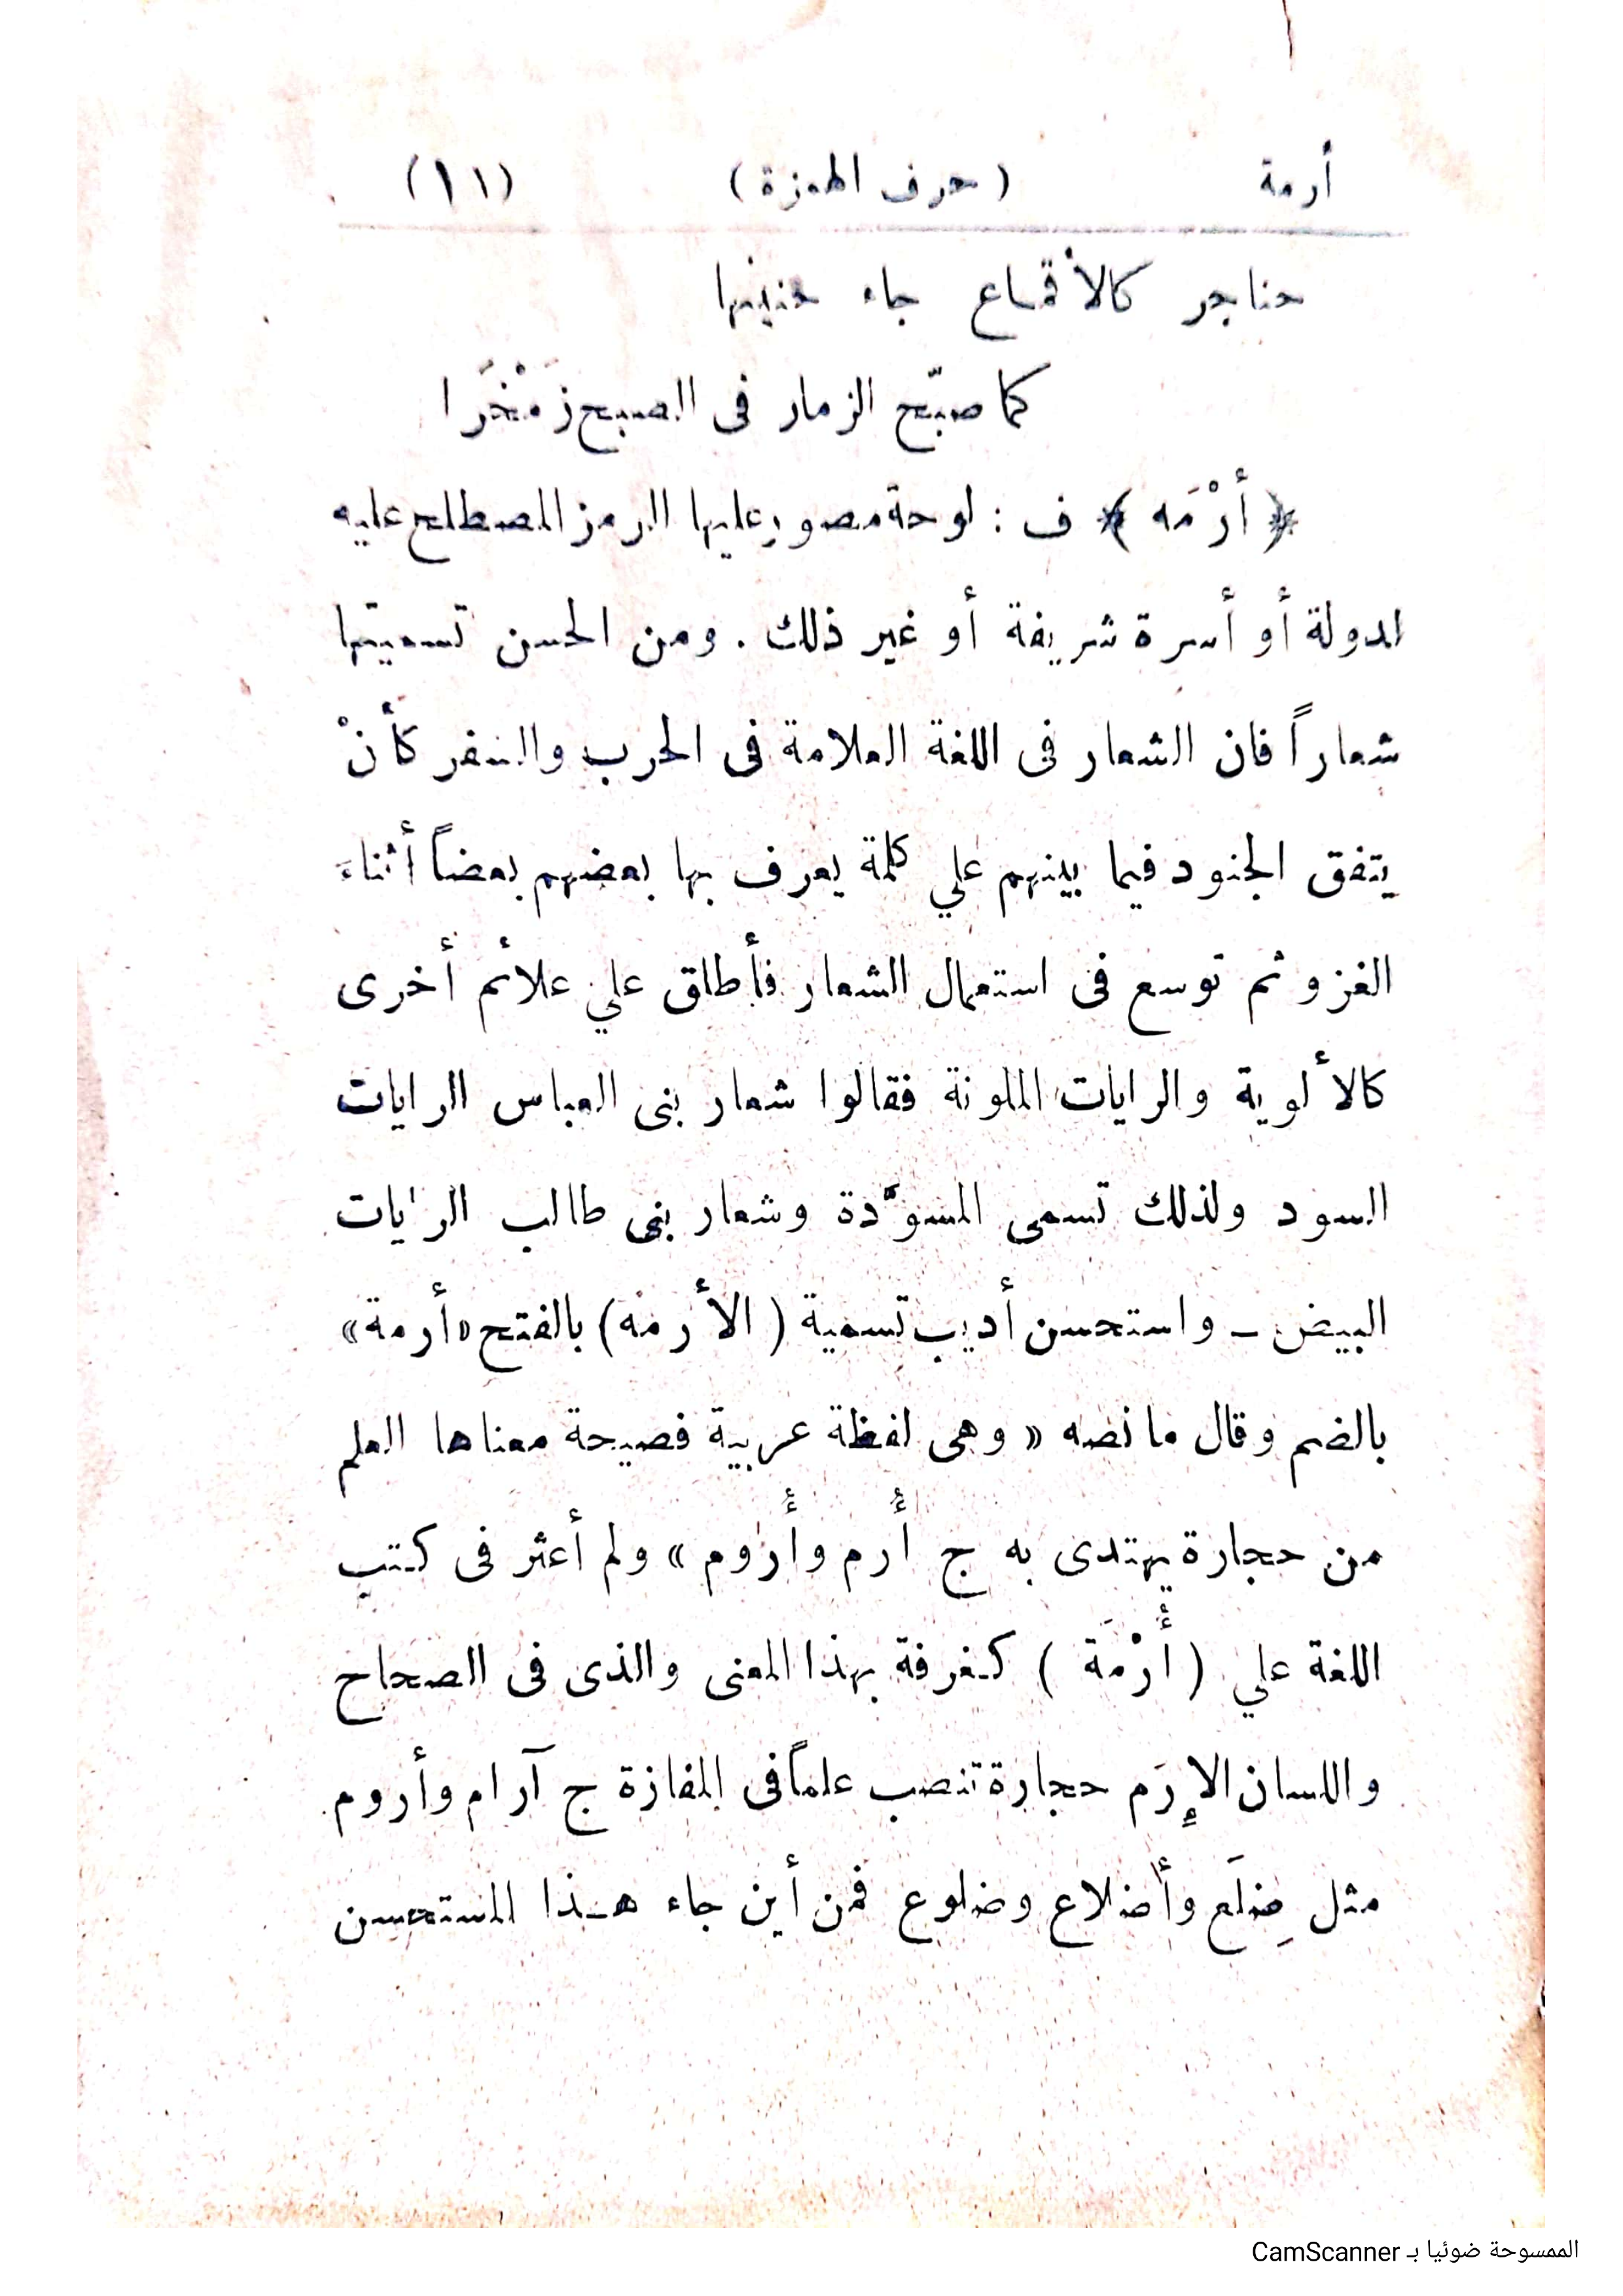 أرمة (حرف الهمزة) (١١)
حناجر كالأقماع جاء حنينها
كما صبّح الزمار فى الصبح زَمْخَرا
﴿أرْمَه﴾ ف : لوحة مصور عليها الرمز المصطلح عليه
لدولة أو أسرة شريفة أو غير ذلك . ومن الحسن تسميتها
شعاراً فان الشعار فى اللغة العلامة فى الحرب والسفر كأنْ
يتفق الجنود فيما بينهم علي كلمة يعرف بها بعضهم بعضاً أثناء
الغزو ثم توسع فى استعمال الشعار فأطلق علي علائم أخرى
كالألوية والرايات الملونة فقالوا شعار بنى العباس الرايات
السود ولذلك تسمى المسوّدة وشعار بنى طالب الرايات
البيض ــ واستحسن أديب تسمية (الأرمه) بالفتح «أرمة»
بالضم وقال ما نصه « وهى لفظة عربية فصيحة معناها العلم
من حجارة يهتدى به ج أُرم وأُروم » ولم أعثر فى كتب
اللغة علي (أُرْمَة) كغرفة بهذا المعنى والذى فى الصحاح
واللسان الإِرَم حجارة تنصب علماً فى المفازة ج آرام وأروم
مثل ضِلَع وأضلاع وضلوع فمن أين جاء هذا المستحسن
الممسوحة ضوئيا بـ CamScanner